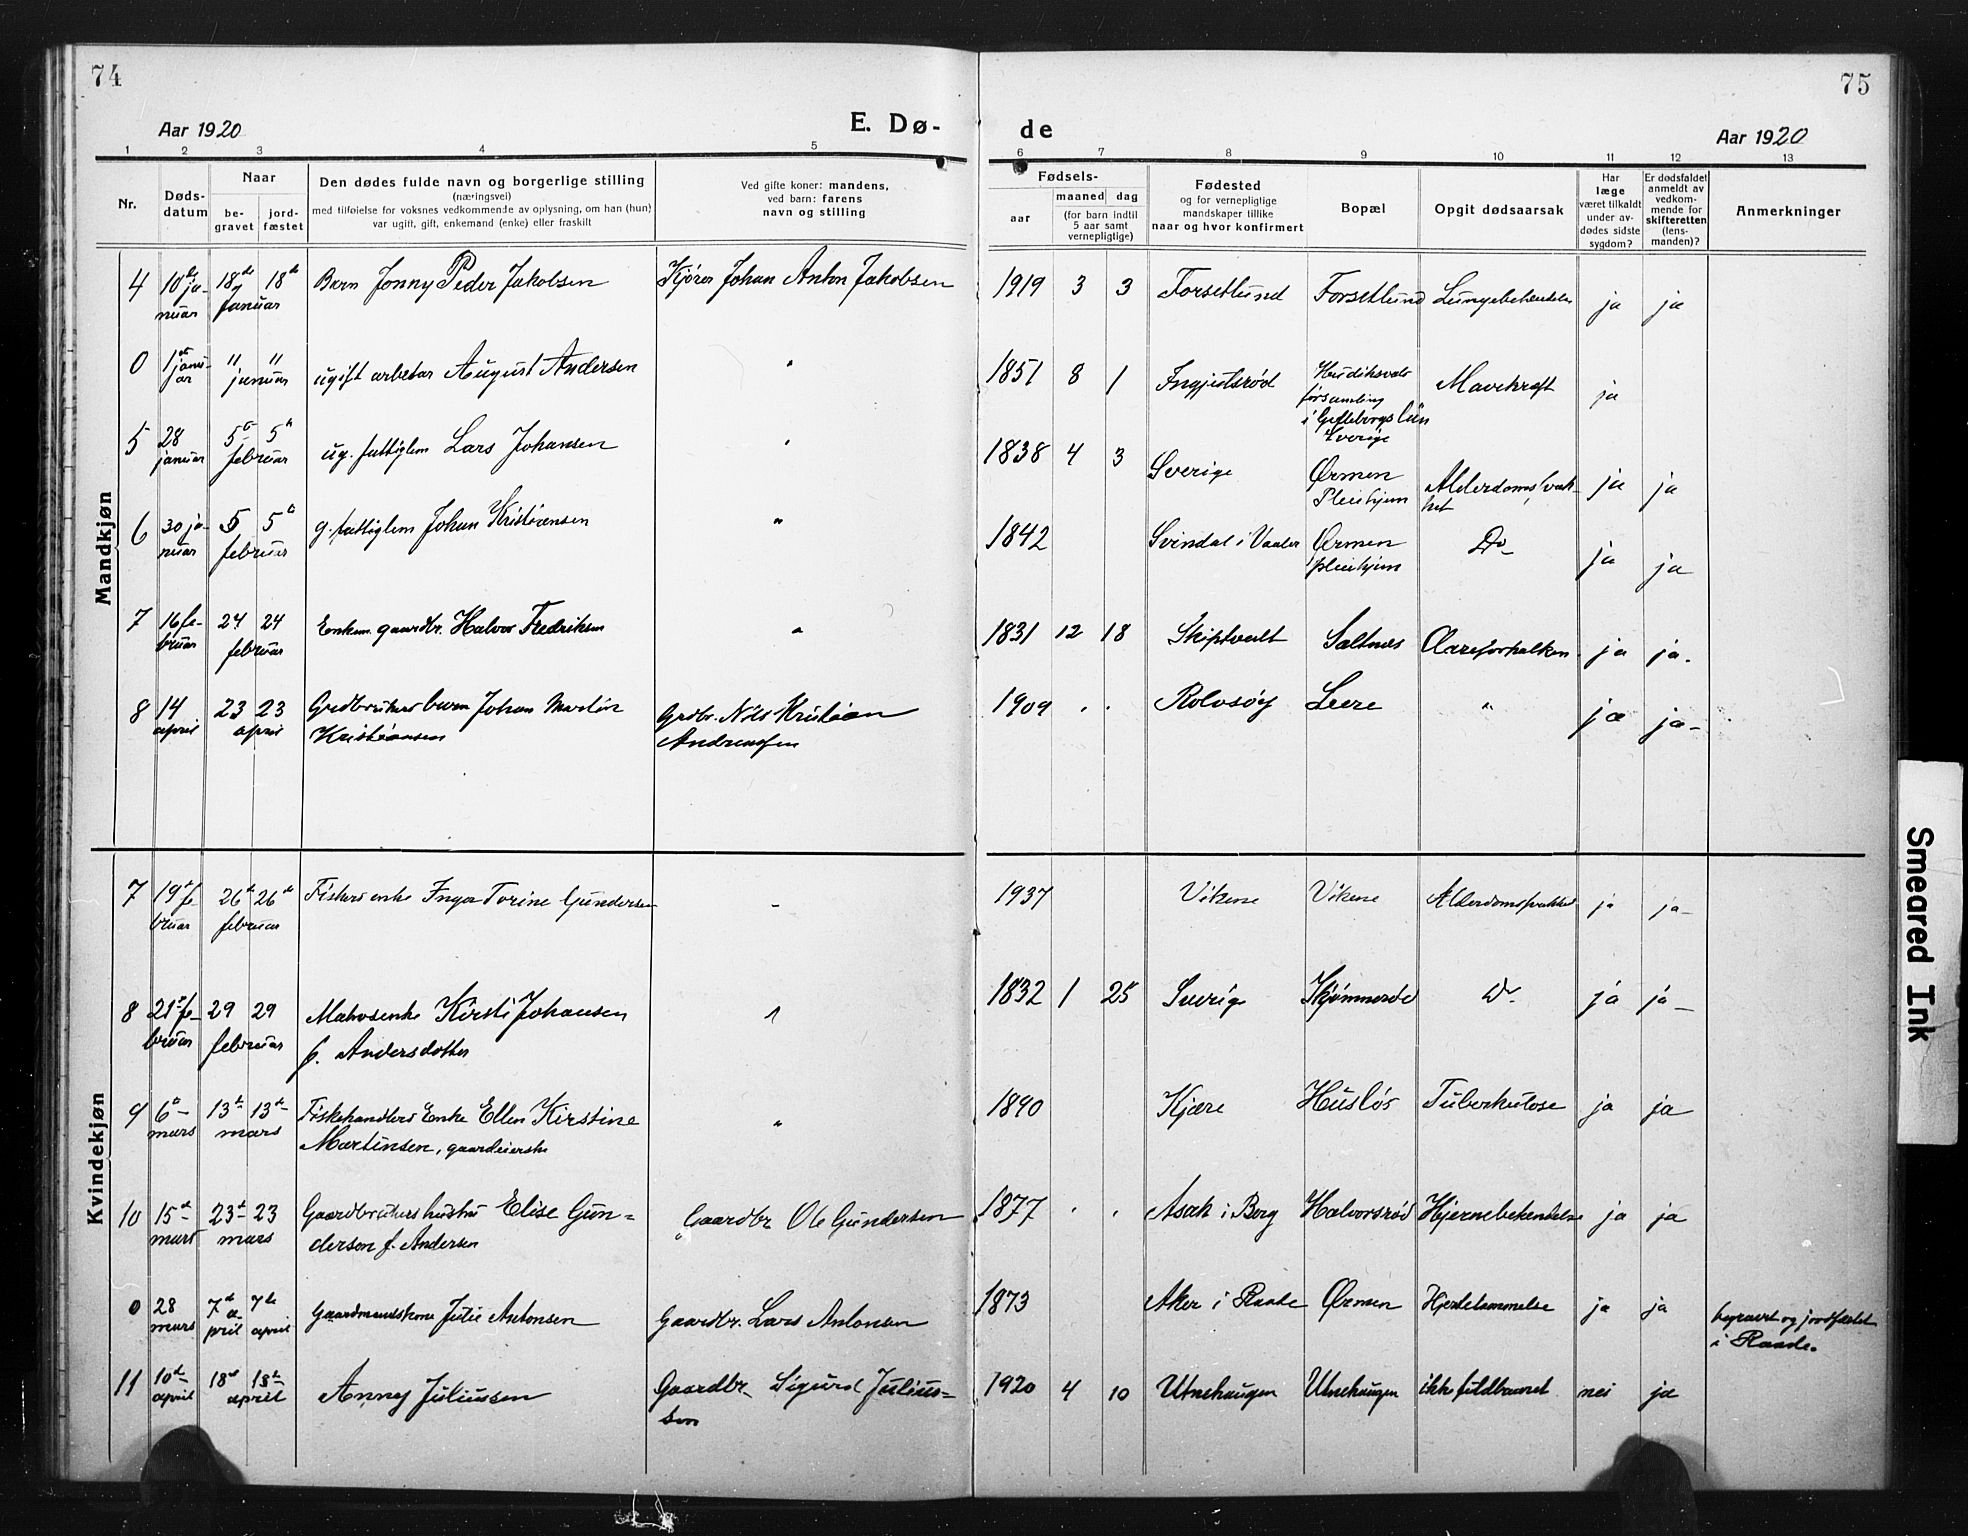 74
75
Aar 1920
E. Dø-
de
Aar 1920
1 2 3 4 5 6 7 8 9 10 11 12 13
Nr.
Døds-
datum
Naar
be-
gravet
jord-
fæstet
Den dødes fulde navn og borgerlige stilling
(næringsvei)
med tilføielse for voksnes vedkommende av oplysning, om han (hun)
var ugift, gift, enkemand (enke) eller fraskilt
Ved gifte koner: mandens,
ved barn: farens
navn og stilling
Fødsels-
aar
maaned dag
(for barn indtil
5 aar samt
vernepligtige)
Fødested
og for vernepligtige
mandskaper tillike
naar og hvor konfirmert
Bopæl
Opgit dødsaarsak
Har
læge
været tilkaldt
under av-
dødes sidste
sygdom?
Er dødsfaldet
anmeldt av
vedkom-
mende for
skifteretten
(lens-
manden)?
Anmerkninger
Mandkjøn
4 10de ja- 18de 18de Barn Jonny Peder Jakobsen Kjører Johan Anton Jakobsen 1919 3 3 Forsetlund Forsetlund Lungebetændelse ja ja
nuar januar
0 1 janu- " " ugift arbeder August Andersen " 1851 8 1 Ingjutsrød Hudiksvals Mavekræft ja
ar januar
forsamling
i Gefleborgs Län
Sverige
5 28 5 5 ug. fattiglem Lars Johansen " 1838 4 3 Sverige Ørmen Alderdomssvak- ja ja
januar februar
Pleiehjem het
6 30 ja- 5 5 g. fattiglem Johan Kristiansen " 1842 Svindal i Vaaler Ørmen Do ja ja
nuar februar
pleiehjem
7 16 fe- 24 24 Enkem. gaardbr. Halvor Fredriksen " 1831 12 18 Skiptvedt Saltnes Aareforkalken. ja ja.
bruar februar
8 14 23 23 Grdbrukers barn Johan Martin Grdbr. Nils Kristian 1909 . . Rolvsøy Leere " ja ja-
april april Kristiansen Andreassen
Kvindekjøn
7 19 fe 26 26de Fiskers enke Inga Torine Gundersen - 1937 Vikene Vikene Alderdomssvakhed ja ja-
bruar februar
8 21 fe- 29 29 Matrosenke Kirsti Johansen " 1832 1 25 Sverige Skjønnerød Do. ja ja-
bruar februar f. Andersdotter
9 6- 13de 13de- Fiskehandlers Enke Ellen Kirstine " 1840 Kjære Husløs Tuberkulose ja ja
mars mars Martinsen, gaardeierske
10 15de 23de 23 Gaardbrukers hustru Elise Gun- Gaardbr Ole Gundersen 1877 . . Asak i Borg Halvorsrød Hjernebetendelse ja ja
mars mars derson f. Andersen
0 28 7de a- 7de Gaardmandskone Julie Antonsen Gaardbr. Lars Antonsen 1873 Aker i Raade Ørmen Hjertelammelse ja ja begravet og jordfæstet
mars pril april i Raade.
11 10de 18de 18de Anny Juliussen Gaardbr. Sigurd Julius- 1920 4 10 Utnehaugen Utnehaugen ikke fuldbaaret nei ja
april april sen
Smeared Ink